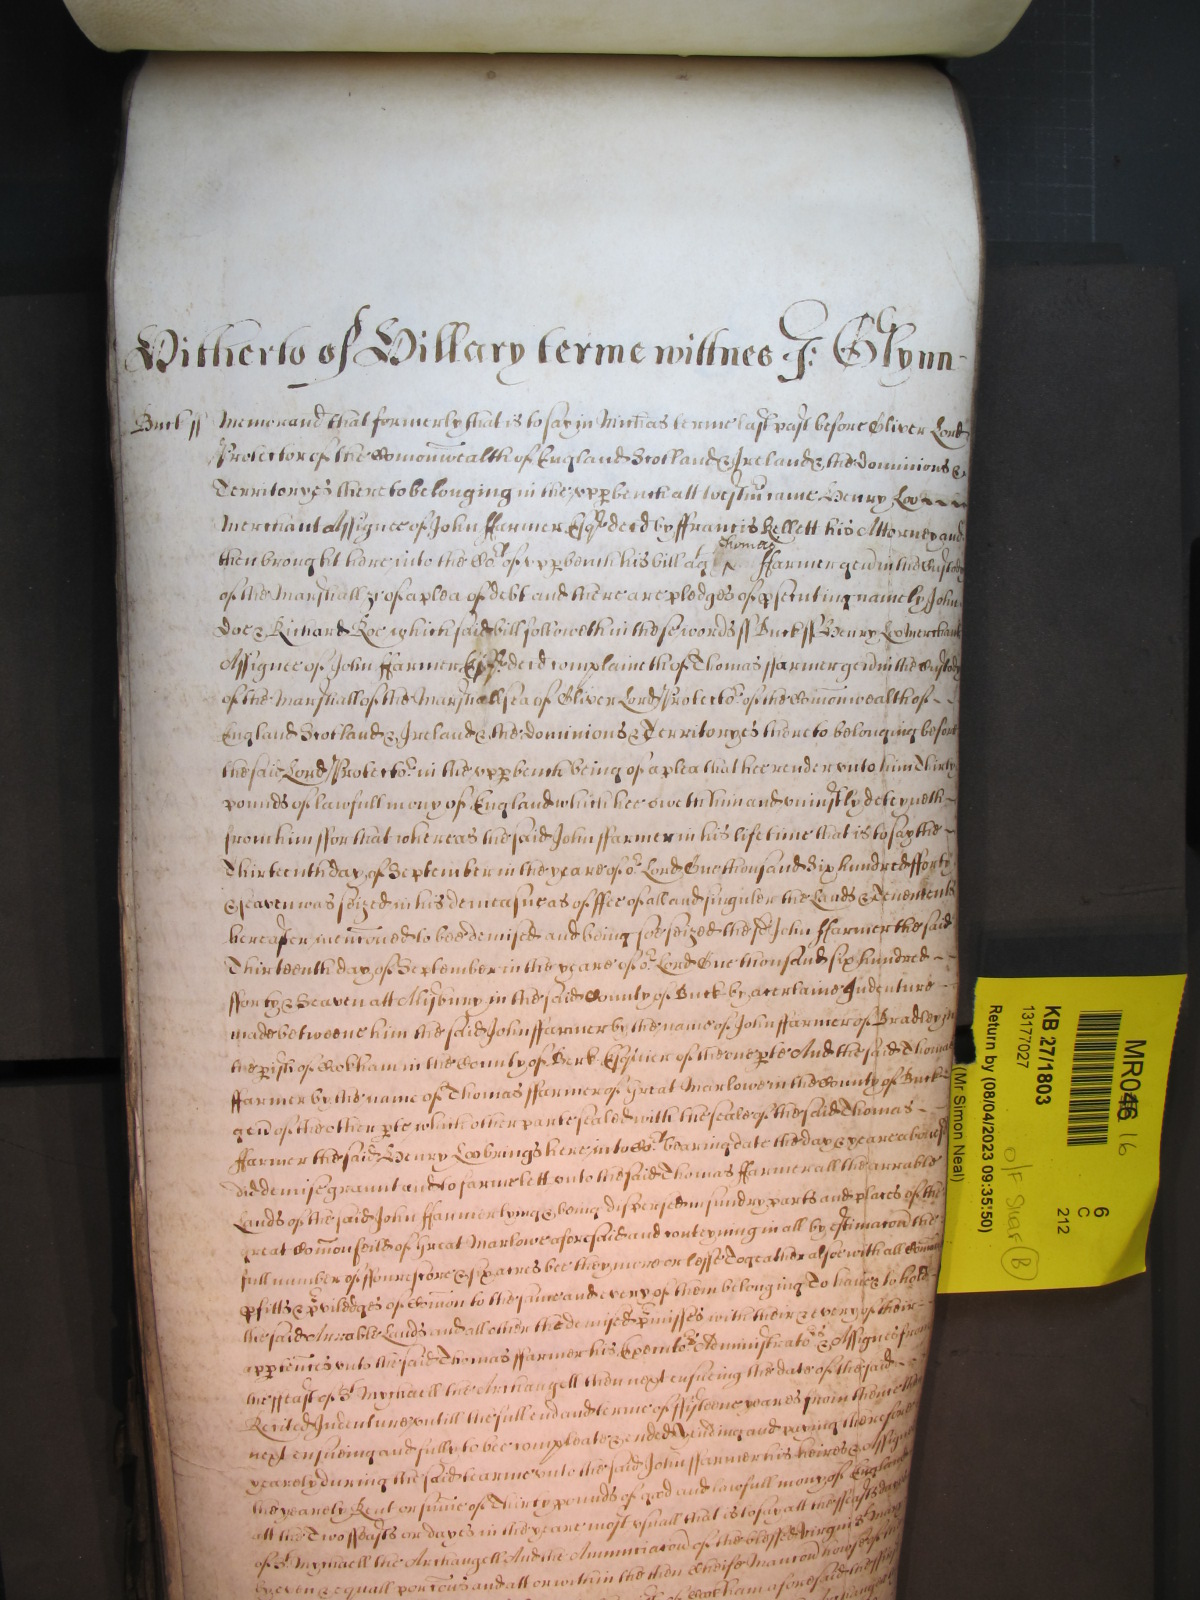 Hitherto of Hillary terme wittnes J: Glynn
Buck ss Memorand that formerly that is to say in Michas terme last past before Oliver Lord
Protector of the Comonwealth of England Scotland & Ireland & the dominions &
Territoryes thereto belonging in the upp bench att Westm came Henry Loo
Merchant Assignee of John ffarmer Esqr decd by ffrancis Kellett his Attorney and
then brought here into the Cot of upp bench his bill agt Thomas ffarmer gen in the Custody
of the Marshall &c of a plea of debt and there are pledges of psecuting namely John
Doe & Richard Roe which said bill followeth in these words ss Buck ss Henry Loo merchant
Assignee of John ffarmer Esqr decd complaineth of Thomas ffarmer gen in the Custody
of the Marshall of the Marshallsea of Oliver Lord Protector of the Comonwealth of
England Scotland & Ireland & the dominions & Territoryes thereto belonging before
the said Lord Protector in the upp bench being of a plea that hee render unto him Thirty
pounds of lawfull mony of England which hee oweth him and uniustly deteyneth
from him ffor that whereas the said John ffarmer in his life time that is to say the
Thirteenth day of September in the yeare of or Lord One thousand Six hundred fforty
& seaven was seized in his demeasne as of ffee of all and singuler the Lands & Tenements
hereafter mencioned to bee demised and being soe seized the sd John ffarmer the said
Thirteenth day of September in the yeare of or Lord One thousand six hundred
fforty & Seaven att Alisbury in the said County of Buck by a certaine Indenture
made betweene him the said John ffarmer by the name of John ffarmer of Bradley in
the pish of Cokham in the County of Berk Esquier of the one pte And the said Thomas
ffarmer by the name of Thomas ffarmer of Great Marlowe in the County of Buck
gen of the other pte which other parte sealed with the seale of the said Thomas
ffarmer the said Henry Loo brings here into Cot bearing date the day & yeare abovesd
did demise graunt and to farme lett unto the said Thomas ffarmer all the arrable
Lands of the said John ffarmer lying & being dispersed in sundry parts and places of the
great Comon feilds of Great Marlowe aforesaid and conteyning in all by estimacon the
full number of ffourescore & six acres bee they more or lesse Togeather alsoe with all Comon
pfitts & priviledges of Comon to the same and every of them belonging To have & to hold
the said Arrable Lands and all other the demised pmisses with their & every of their
apptences unto the said Thomas ffarmer his Executors Administrators & Assignes from
the ffeast of St Mychaell the Archangell then next ensueing the date of the said
Recited Indenture untill the full end and terme of ffifteene yeares from thence then
next ensueing and fully to bee compleate & ended Yeilding and paying therefore
yearely during the said tearme unto the said John ffarmer his heires & Assignes
the yearely Rent or sume of Thirty pounds of good and lawfull mony of England
att the Two ffeasts or dayes in the yeare most usuall that is to say att the ffeasts dayes
of St Mychaell the Archangell And the Annunciacon of the blessed virgin St Mary
by even & equall porcons and att or within the then Cheife Mancon howse of
Cokham aforesaid
MR046 16
KB 27/1803
13177027
Return by (08/04/2023 09:35:50)
(Mr Simon Neal)
6
C
212
O/F Shelf B